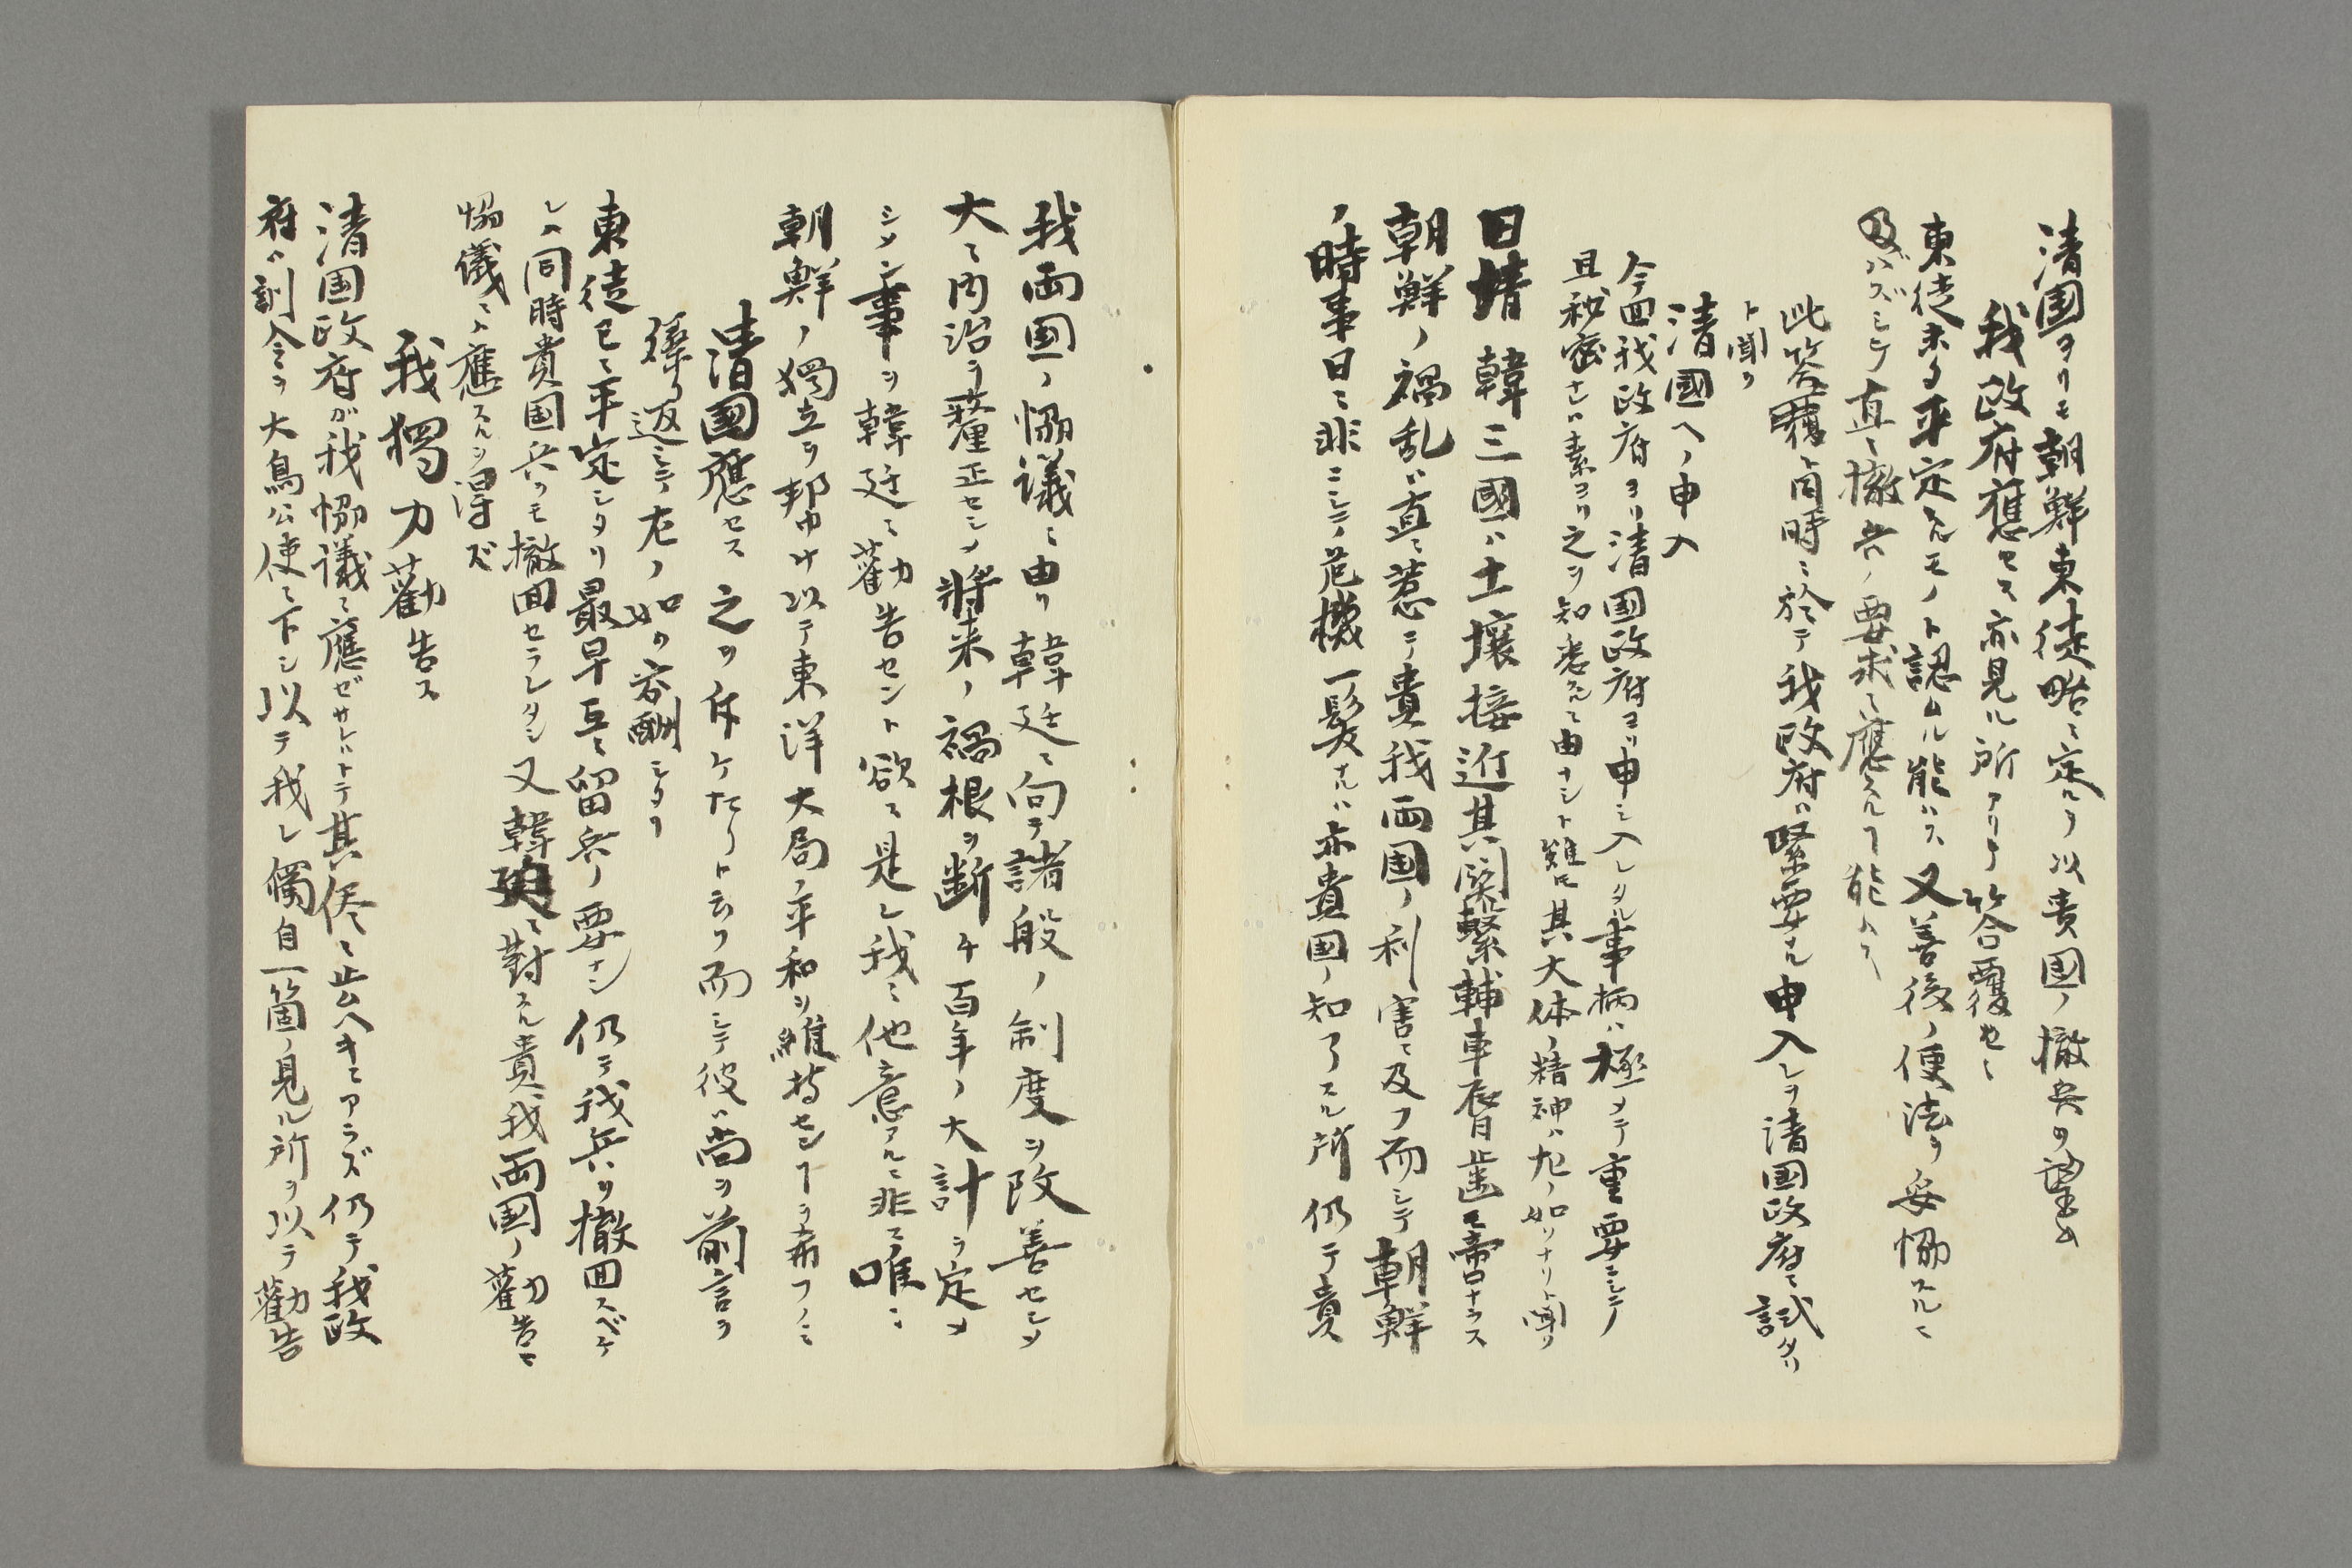 清国ヨリモ朝鮮東徒略々定ルヲ以貴国ノ撤兵ヲ望ム
我政府應セス亦見ル所アリテ答覆セシ
東徒未タ平定スルモノト認ムル能ハス又善後ノ便法ヲ妥協スルニ
及バズシテ直ニ撤兵ノ要求ニ應スル𬼀能ハス
此答覆ト同時ニ於テ我政府ハ緊要ナル申入レヲ清国政府ニ試タリ
ト聞ク
清國ヘノ申入
今回我政府ヨリ清国政府ヨリ申シ入レタル事柄ハ極メテ重要ニシテ
且秘密ナレハ素ヨリ之ヲ知悉スルニ由ナシト雖モ其大体ノ精神ハ左ノ如クナリト聞ク
日清韓三國ハ土壌接近其関繋輔車唇歯モ啻ナラス
朝鮮ノ禍乱ハ直ニ惹テ貴我両国ノ利害ニ及フ而シテ朝鮮
ノ時事日ニ非ニシテ危機一髪ナルハ亦貴国ノ知了スル所仍テ貴
我両国ノ協議ニ由リ韓廷ニ向テ諸般ノ制度ヲ改善セシメ
大ニ内治ヲ釐正セシメ将来ノ禍根ヲ断チ百年ノ大計ヲ定メ
シメン事ヲ韓廷ニ勸告セント欲ス是レ我ニ他意アルニ非ス唯
朝鮮ノ獨立ヲ邦ケ以テ東洋大局ノ平和ヲ維持センヿヲ希フノミ
清國應セス之ヲ斥ケたりト云フ而シテ彼ハ尚ヲ前言ヲ
繰リ返シテ左ノ如ク容酬シタリ
東徒已ニ平定シタリ最早互ニ留兵ノ要ナシ仍テ我兵ハ撤回スベケ
レハ同時貴国兵ヲモ撤回セラレタシ又韓廷ニ對スル貴我両國ノ勸告ニ
協儀ニハ應スルヲ得ズ
我獨力勸告ス
清国政府が我協議ニ應ゼサレバトテ其侭ニ止ムヘキニアラズ仍テ我政
府ハ訓令ヲ大鳥公使ニ下シ以テ我レ獨自一箇ノ見ル所ヲ以テ勸告